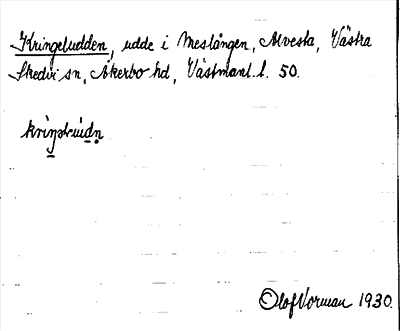 Kringeludden, udde i Meslången, Alvesta, Västra
Skedvi sn, Åkerbo hd, Västmanl. l. 50.
Olof Norman 1930.